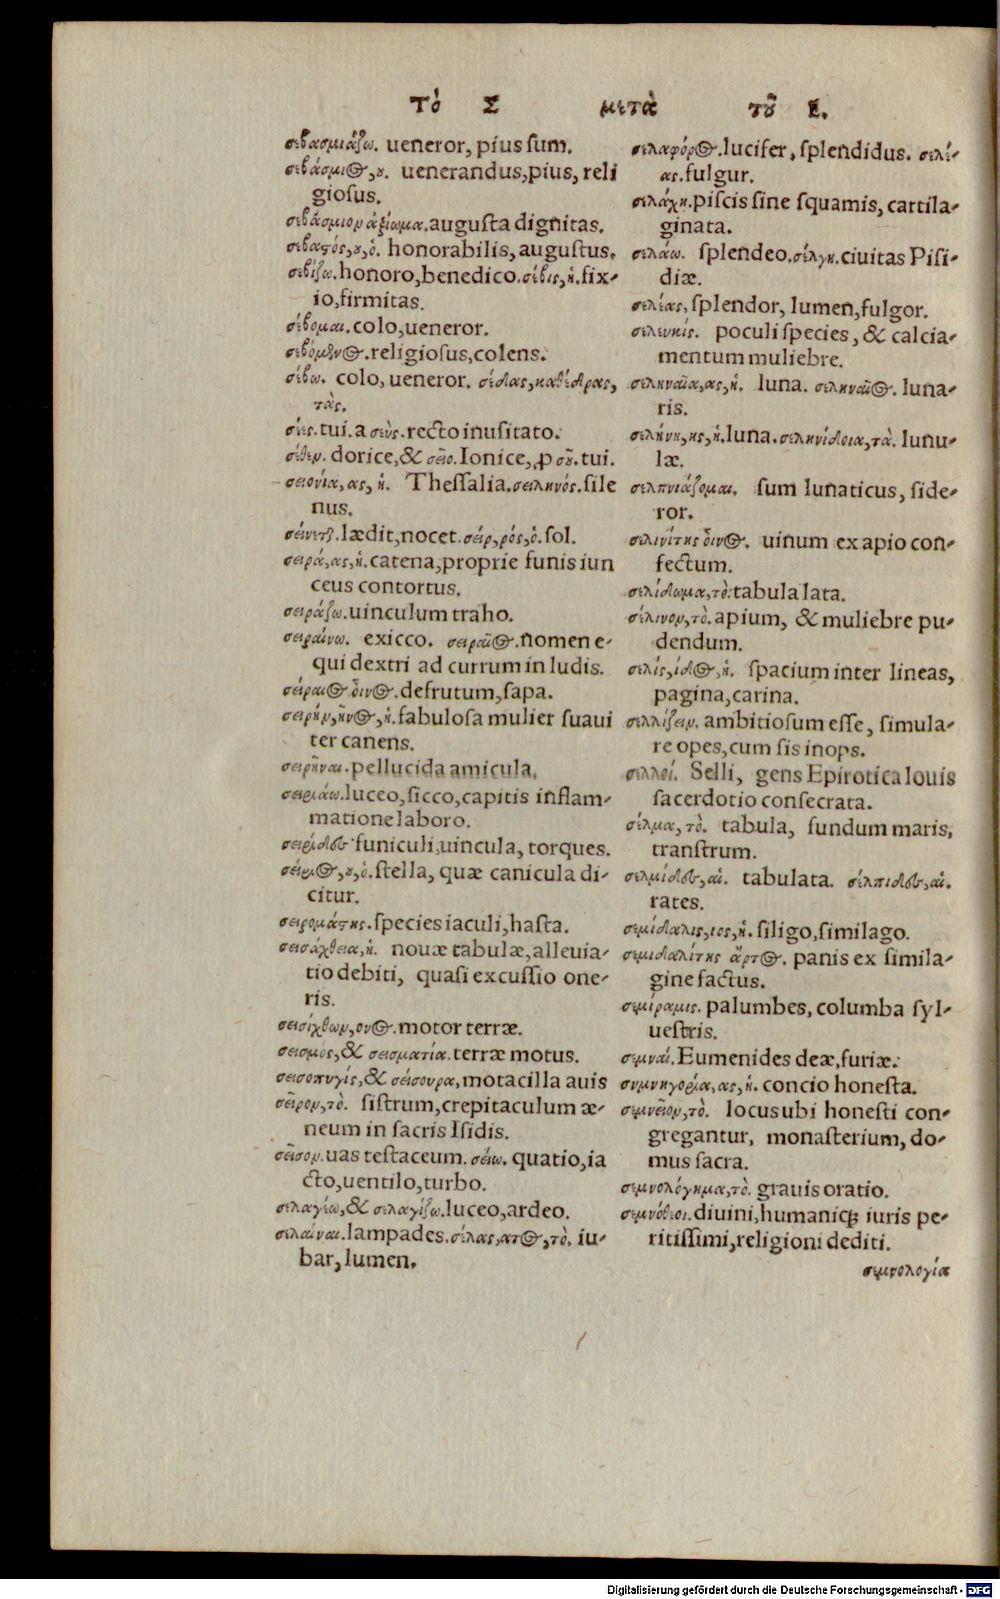 Τὸ Σ μετὰ τοῦ Ε.
σεβασμιάζω. ueneror, pius sum.
σεβάσμιος,ου. uenerandus,pius, reli
giosus.
σεβάσμιον ἀξίωμα.augusta dignitas.
σεβαστός,ου,ὁ. honorabilis,augustus.
σεβίζω.honoro,benedico.σέβις,ἡ.fix-
io,firmitas.
σέβομαι.colo,ueneror.
σεβόμενος.religiosus,colens.
σέβω. colo, ueneror. σέδας,καθέδρας,
τὰς.
σέες.tui.a σεὺς.recto inusitato.
σέθεν. dorice,& σεῖο.Ionice, ꝓ σοῦ.tui.
σειονία,ας, ἡ. Thessalia.σειληνός.sile
nus.
σείνεται.lædit,nocet.σείρ,ρός,ὁ.sol.
σειρά,ας,ἡ.catena,proprie funis iun
ceus contortus.
σειράζω.uinculum traho.
σειραίνω. exicco. σειραῖος.nomen e-
qui dextri ad currum in ludis.
σείραιος οἶνος.defrutum,sapa.
σειρήν,ῆνος,ἡ.fabulosa mulier suaui
ter canens.
σειρῆναι.pellucida amicula.
σειριάω.luceo,sicco,capitis inflam-
matione laboro.
σειρίδες funiculi,uincula, torques.
σείριος,ου,ὁ.stella, quæ canicula di-
citur.
σειρομάστης.species iaculi,hasta.
σεισάχθεια,ἡ. nouæ tabulæ,alleuia-
tio debiti, quasi excussio one-
ris.
σεισίχθων,ονος.motor terræ.
σεισμός,& σεισματία.terræ motus.
σεισοπυγίς,& σείσουρα,motacilla auis
σεῖρον,τὸ. sistrum,crepitaculum æ-
neum in sacris Isidis.
σεῖσον.uas testaceum. σείω. quatio,ia
cto,uentilo,turbo.
σελαγέω,& σελαγίζω.luceo,ardeo.
σελαίναι.lampades.σέλας,ατος,τὸ. iu-
bar,lumen.
σελαφόρος.lucifer, splendidus. σελέ-
ας.fulgur.
σελάχη.piscis sine squamis, cartila-
ginata.
σελάω. splendeo.σέλγη.ciuitas Pisi-
diæ.
σελέας, splendor, lumen,fulgor.
σελευκίς. poculi species, & calcia-
mentum muliebre.
σεληναία,ας,ἡ. luna. σεληναῖος. luna-
ris.
σελήνη,ης,ἡ.luna.σεληνίδοια,τὰ. lunu-
læ.
σελπνιάζομαι. sum lunaticus, side-
ror.
σελινίτης οἶνος. uinum ex apio con-
fectum.
σελίδωμα,τὸ:tabula lata.
σέλινον,τὸ.apium, & muliebre pu-
dendum.
σελίς,ίδος,ἡ. spacium inter lineas,
pagina,carina.
σελλίζειν. ambitiosum esse, simula-
re opes,cum sis inops.
σελλοί. Selli, gens Epirotica Iouis
sacerdotio consecrata.
σέλμα, τὸ. tabula, fundum maris,
transtrum.
σελμίδες,αἱ. tabulata. σέλπιδες,αἱ.
rates.
σεμίδαλις,ιος,ἡ.siligo,similago.
σεμιδαλίτης ἄρτος. panis ex simila-
gine factus.
σεμίραμις. palumbes, columba syl-
uestris.
σεμναί.Eumenides deæ,furiæ.
σεμνηγορία,ας,ἡ.concio honesta.
σεμνεῖον,τὸ. locus ubi honesti con-
gregantur, monasterium, do-
mus sacra.
σεμνολόγημα,τὸ. grauis oratio.
σεμνόθεοι.diuini,humaniqꝫ iuris pe-
ritissimi,religioni dediti.
σεμνολογία
Digitalisierung gefördert durch die Deutsche Forschungsgemeinschaft - DFG